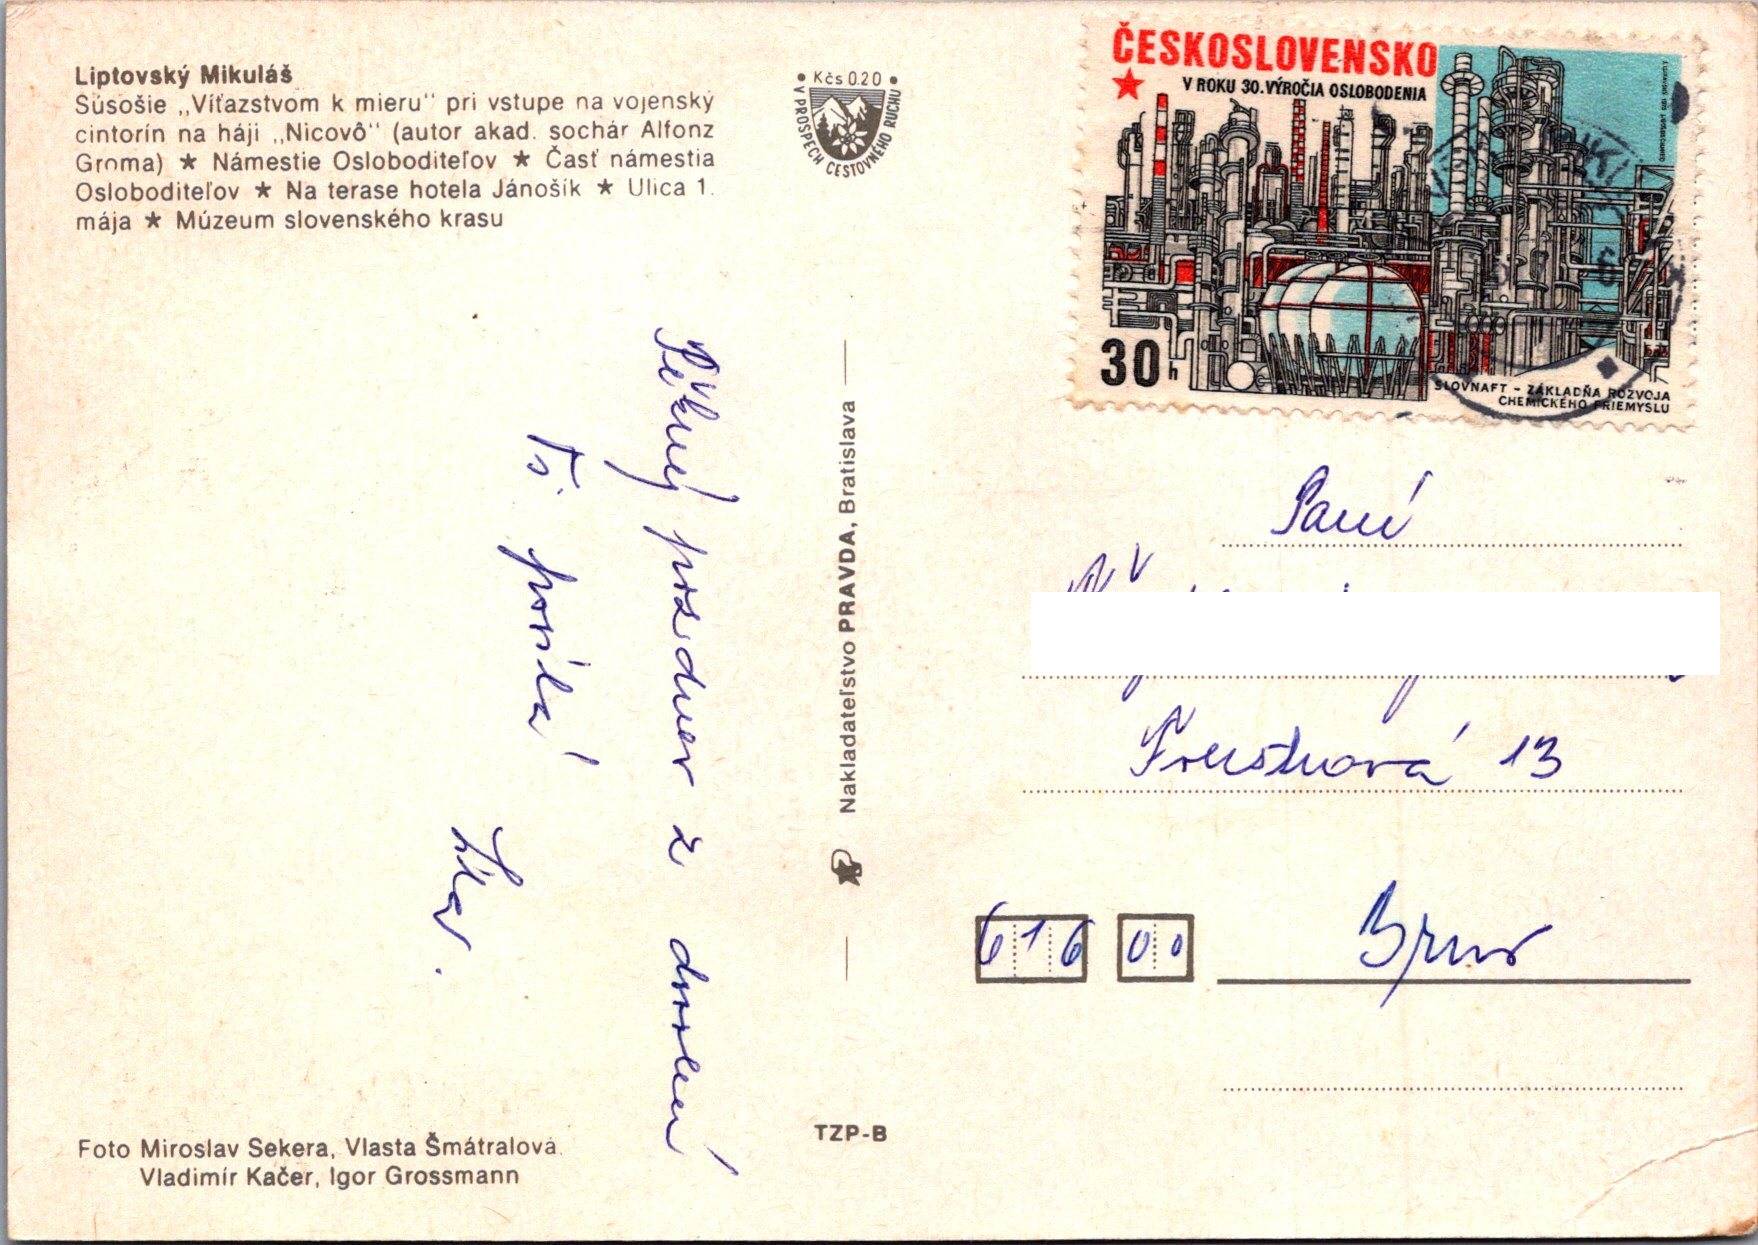 Liptovský Mikuláš
Súsošie „Víťazstvom k mieru" pri vstupe na vojenský
cintorín na háji „Nicovô" (autor akad. sochár Alfonz
Groma) ★ Námestie Osloboditeľov ★ Časť námestia
Osloboditeľov ★ Na terase hotela Jánošík ★ Ulica 1.
mája ★ Múzeum slovenského krasu
• Kčs 0.20 •
V PROSPECH CESTOVNÉHO RUCHU
ČESKOSLOVENSKO
V ROKU 30. VÝROČIA OSLOBODENIA
30 h
SLOVNAFT - ZÁKLADŇA ROZVOJA
CHEMICKÉHO PRIEMYSLU
Pěkný pozdrav z dovolené
Ti posílá
Nakladateľstvo PRAVDA, Bratislava
Paní
13
616 00
Brno
Foto Miroslav Sekera, Vlasta Šmátralová
Vladimír Kačer, Igor Grossmann
TZP-B